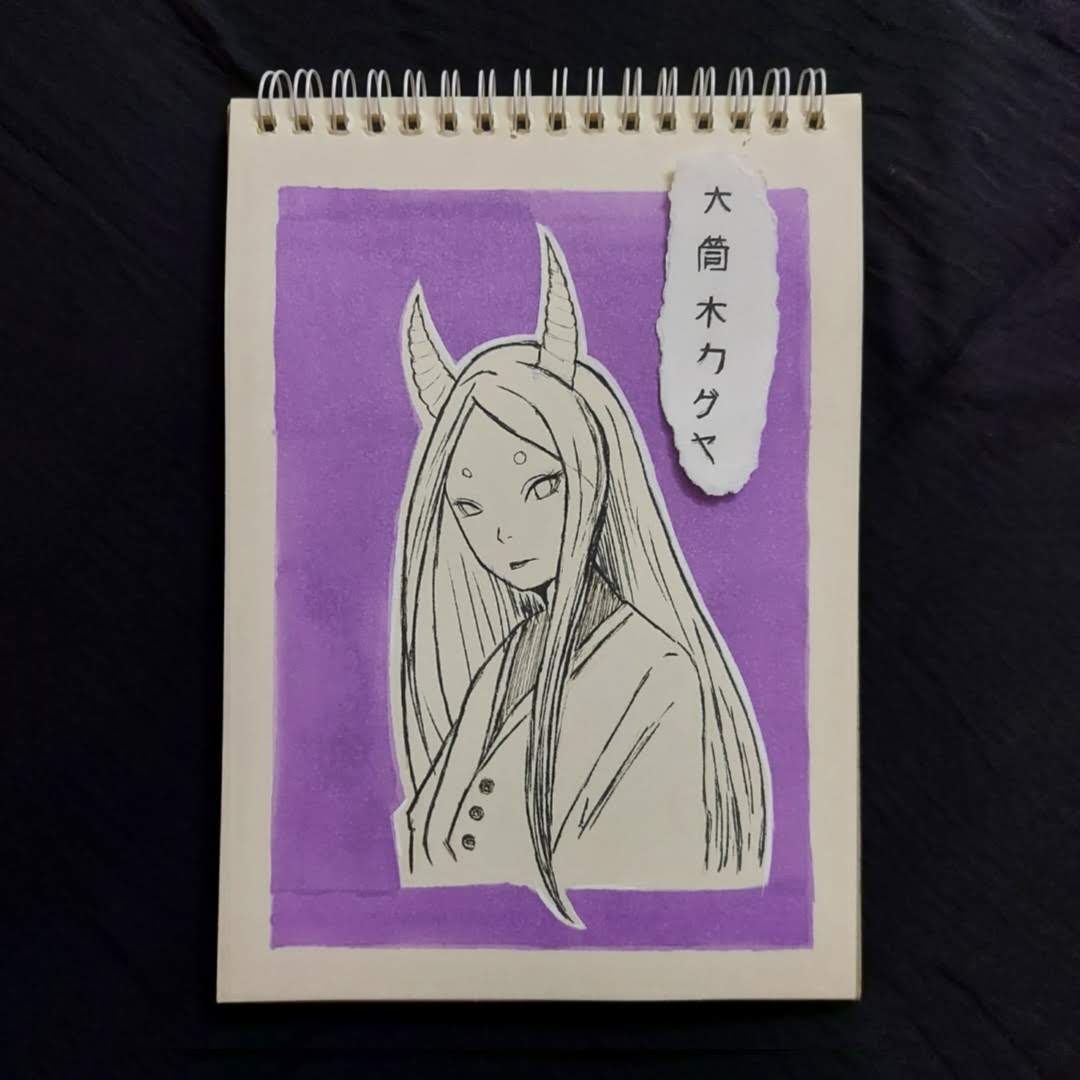 大筒木カグヤ